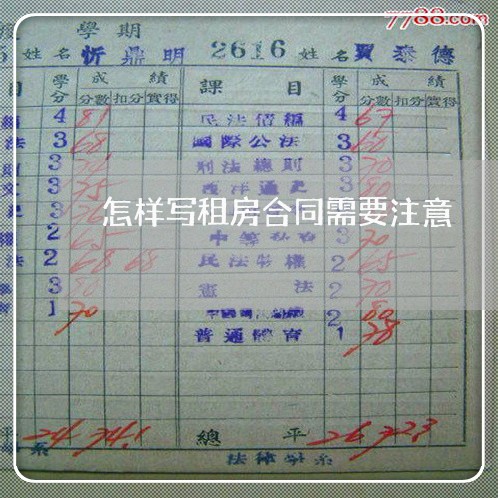 7788.com
學期
姓名 忻鼎明 2616 姓名 賈泰德
目 學分 成績 課目 學分 成績
分數 扣分 實得 分數 扣分 實得
4 81 民法債編 4 67
法 3 68 國際公法 3 60
3 刑法總則 3 70
3 75 西洋通史 3 80
怎样写租房合同需要注意
2 65 3 70
法 2 68 68 民法物權 2 65
3 80 憲法 2 70
1 70 2 80
普通體育 1 78
平 24 74.1 總平 26 72.3
系 法律學系